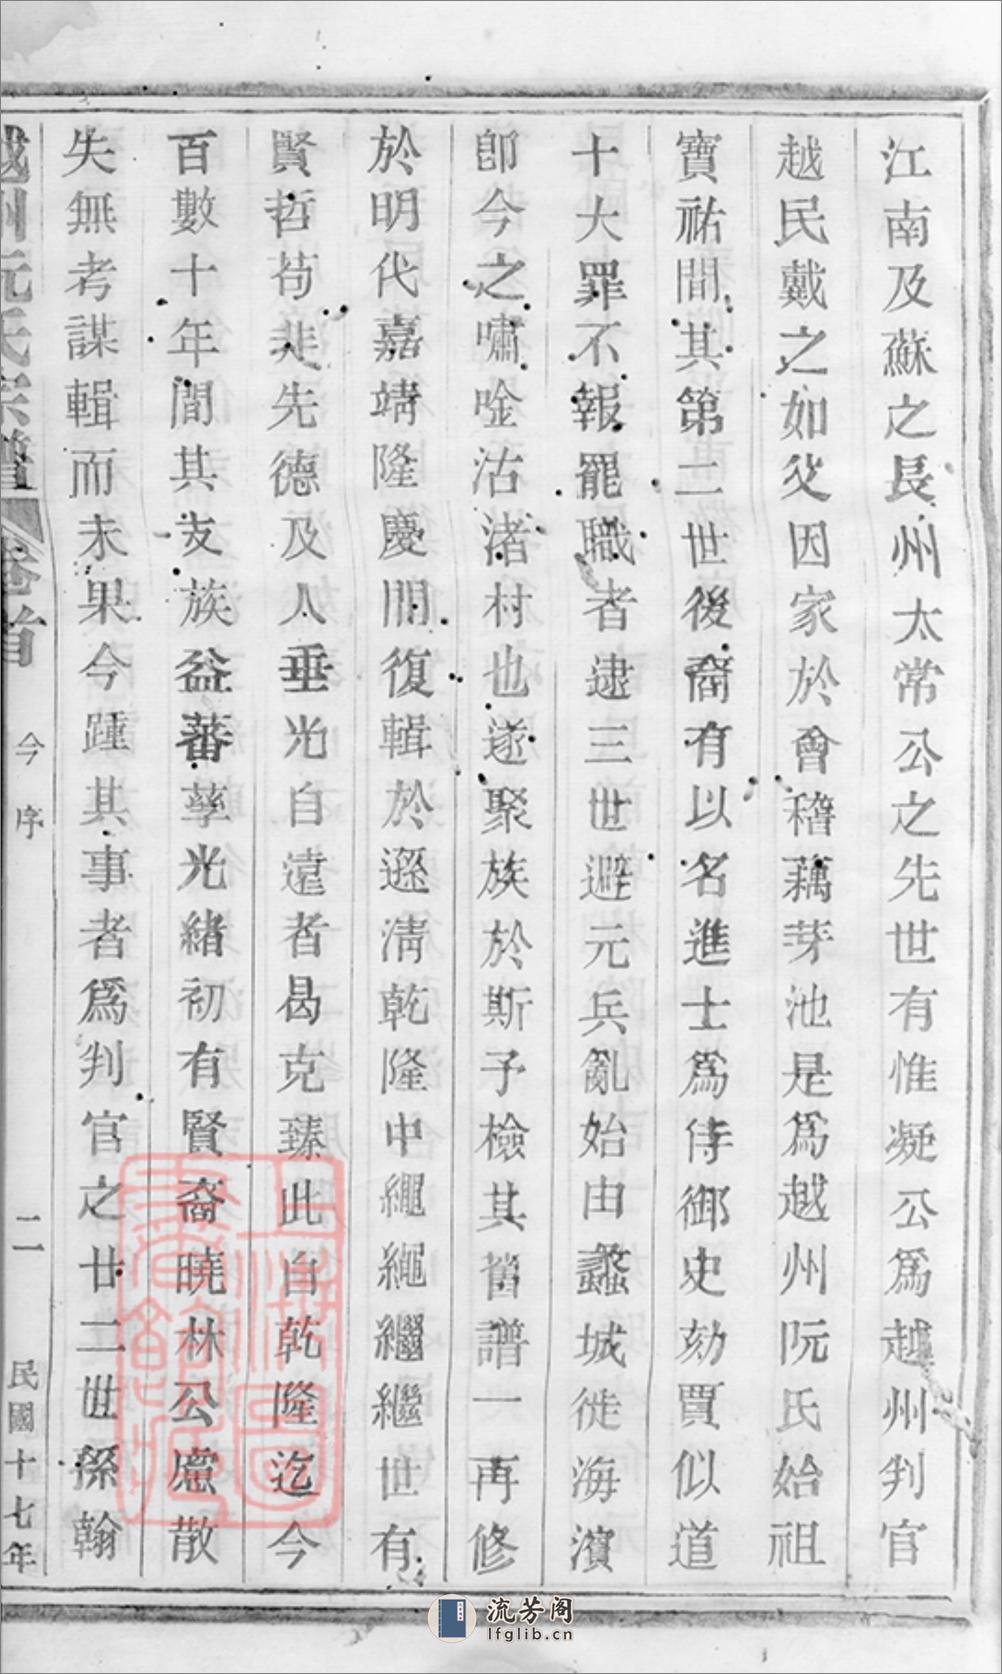 江南及蘇之長州太常公之先世有惟凝公爲越州判官
越民戴之如父因家於會稽藕芽池是爲越州阮氏始祖
寶祐間其第二世後裔有以名進士爲侍御史劾賈似道
十大罪不報罷職者逮三世避元兵亂始由蠡城徙海濱
卽今之嘯唫沽渚村也遂聚族於斯予檢其舊譜一再修
於明代嘉靖隆慶間復輯於遜淸乾隆中繩繩繼繼世有
賢哲苟非先德及人垂光自遠者曷克臻此自乾隆迄今
百數十年間其支族益蕃孳光緖初有賢裔曉林公慮散
失無考謀輯而未果今踵其事者爲判官之廿二世孫翰
越州阮氏宗譜 卷首 今序 二 民國十七年
流芳阁
lfglib.cn